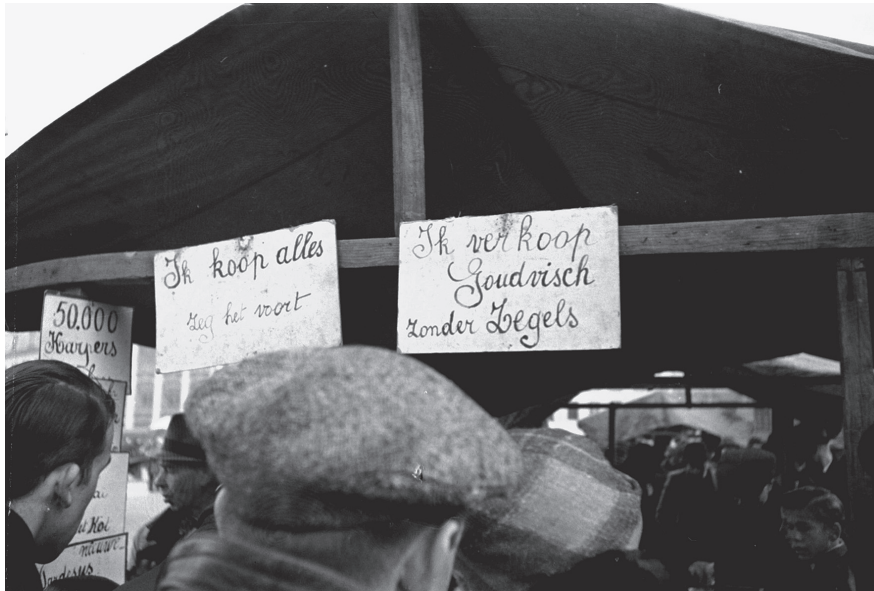 50.000
Karpers
Ik koop alles
zeg het voort
Ik verkoop
Goudvisch
zonder Zegels
nieuwe